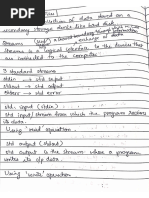 collection of data stored on a
secondary storage device like hard disk.
Streams
exchange of data
Streams is a logical interface to the devices that
are connected to the computer.
3 standard streams
stdin → std input
stdout → std output
stderr → std error
std. input (stdin)
std input stream from which the program receives
its data.
Using 'read' operation.
std. output (stdout)
std output is the stream where a program
writes its o/p data.
Using 'write' operation.